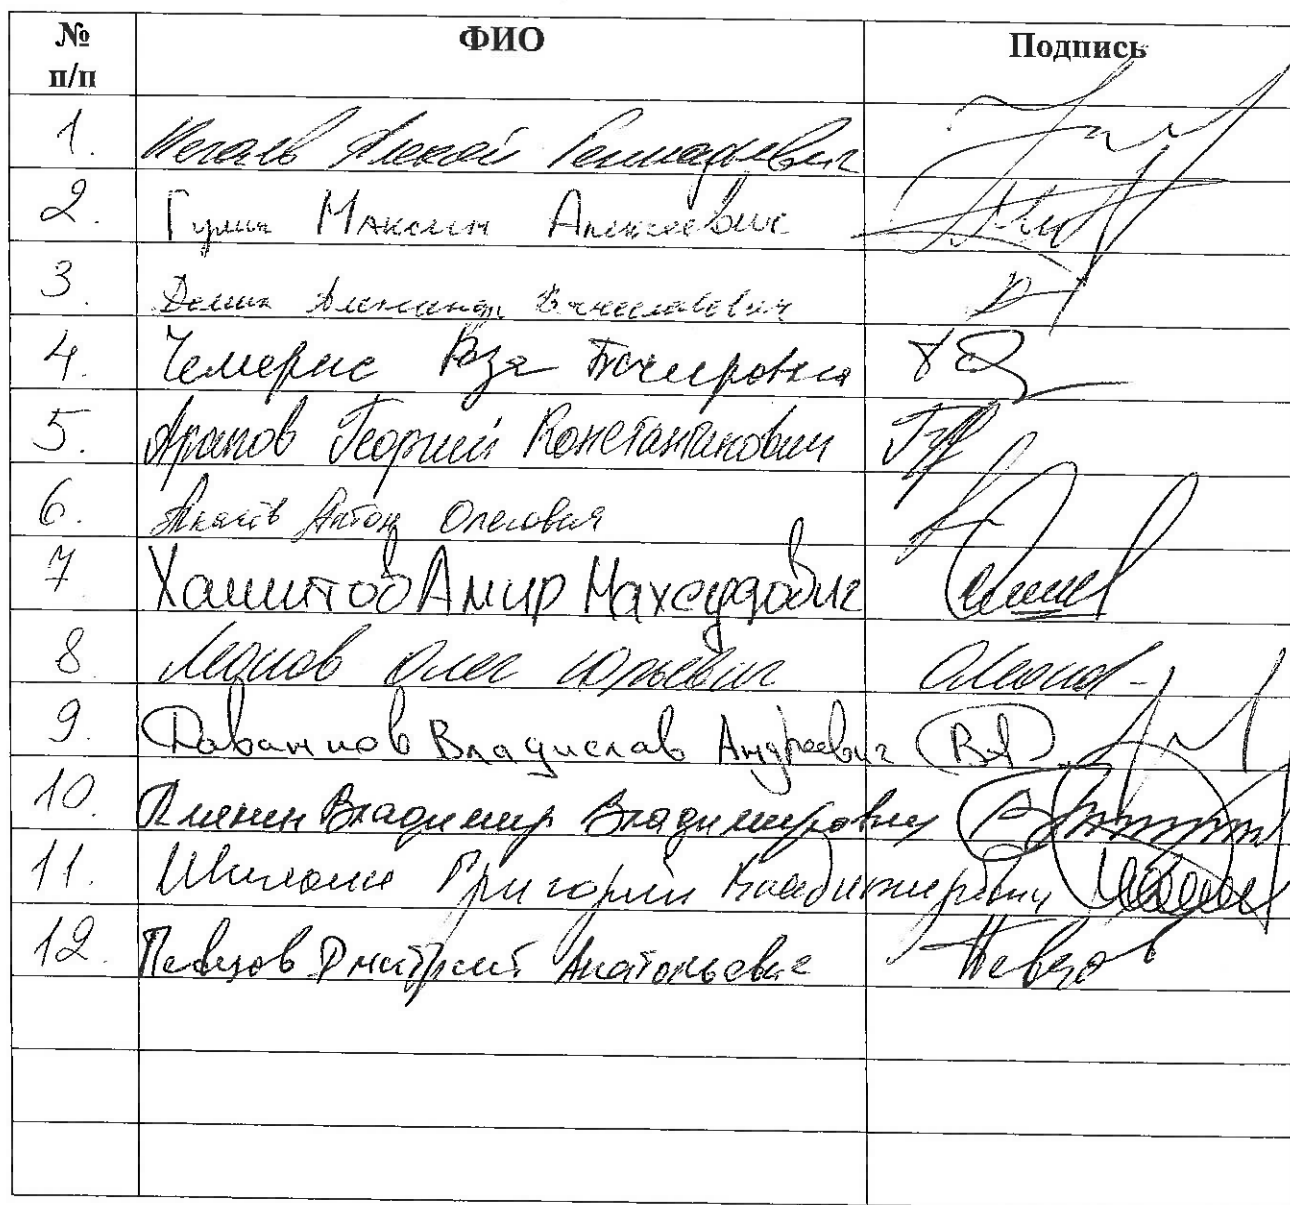 № п/п ФИО Подпись
1. Нечаев Алексей Геннадьевич
2. Гулин Максим Алексеевич
3. Демин Александр Вячеславович
4. Чемерис Роза Басировна
5. Арапов Георгий Константинович
6. Ткачёв Антон Олегович
7 Хамитов Амир Махсудович
8 Леонов Олег Юрьевич ОЛеонов
9. Даванков Владислав Андреевич ВД
10. Плякин Владимир Владимирович
11. Шилкин Григорий Владимирович
12. Певцов Дмитрий Анатольевич Певцов